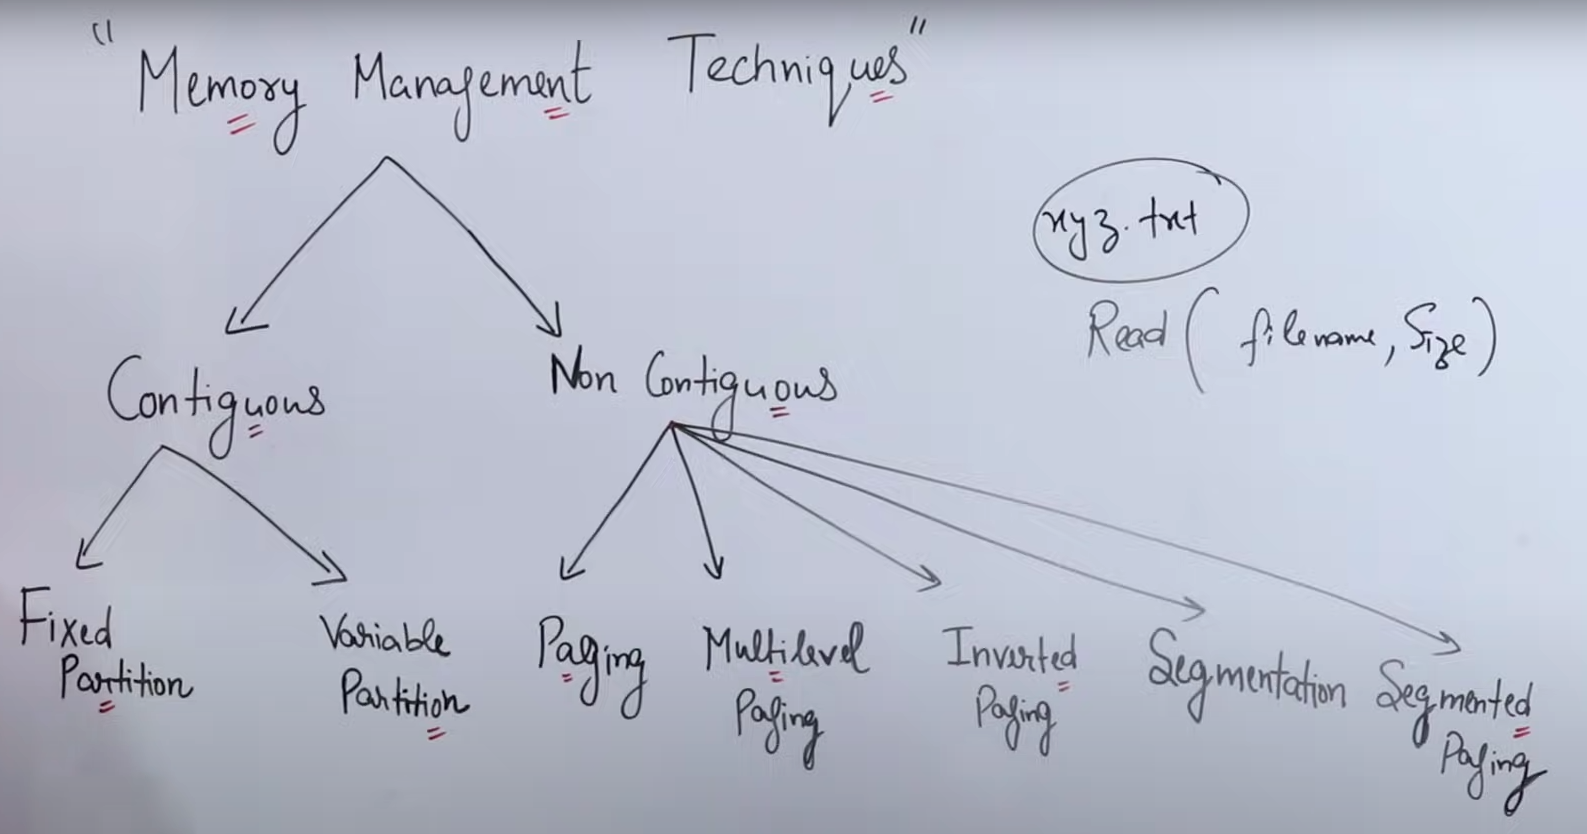 "Memory Management Techniques"
xyz.txt
Read (filename, Size)
Contiguous
Non Contiguous
Fixed
Partition
Variable
Partition
Paging
Multilevel
Paging
Inverted
Paging
Segmentation
Segmented
Paging